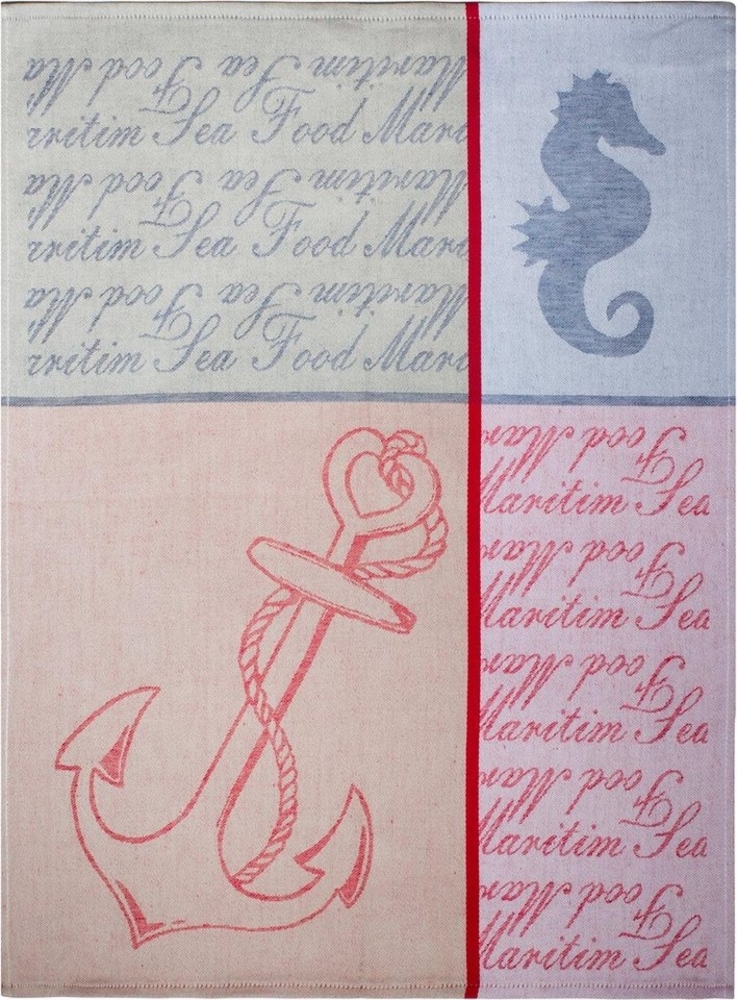 Maritim Sea Food Ma
aritim Sea Food Mari
Maritim Sea Food Ma
aritim Sea Food Mari
Maritim Sea Food Ma
aritim Sea Food Mari
Food Mar
Maritim Sea
Food Mar
Maritim Sea
Food Mar
Maritim Sea
Food Mar
Maritim Sea
Food Mar
Maritim Sea